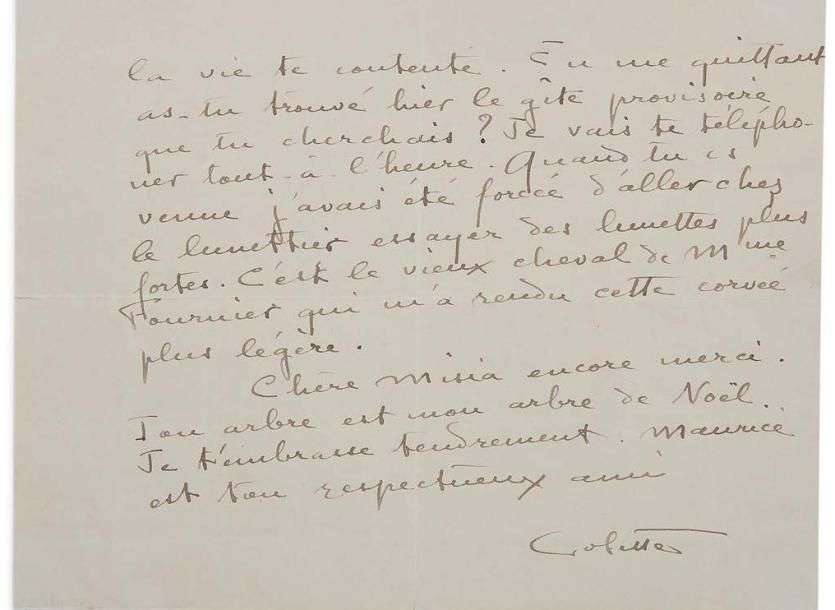 la vie te contente. En me quittant
as-tu trouvé hier le gîte provisoire
que tu cherchais ? Je vais te télépho-
ner tout-à-l'heure. Quand tu es
venue j'avais été forcée d'aller chez
le lunettier essayer des lunettes plus
fortes. C'est le vieux cheval de Mme
Fournier qui m'a rendu cette corvée
plus légère.
Chère Misia encore merci.
Ton arbre est mon arbre de Noël.
Je t'embrasse tendrement. Maurice
est ton respectueux ami
Colette